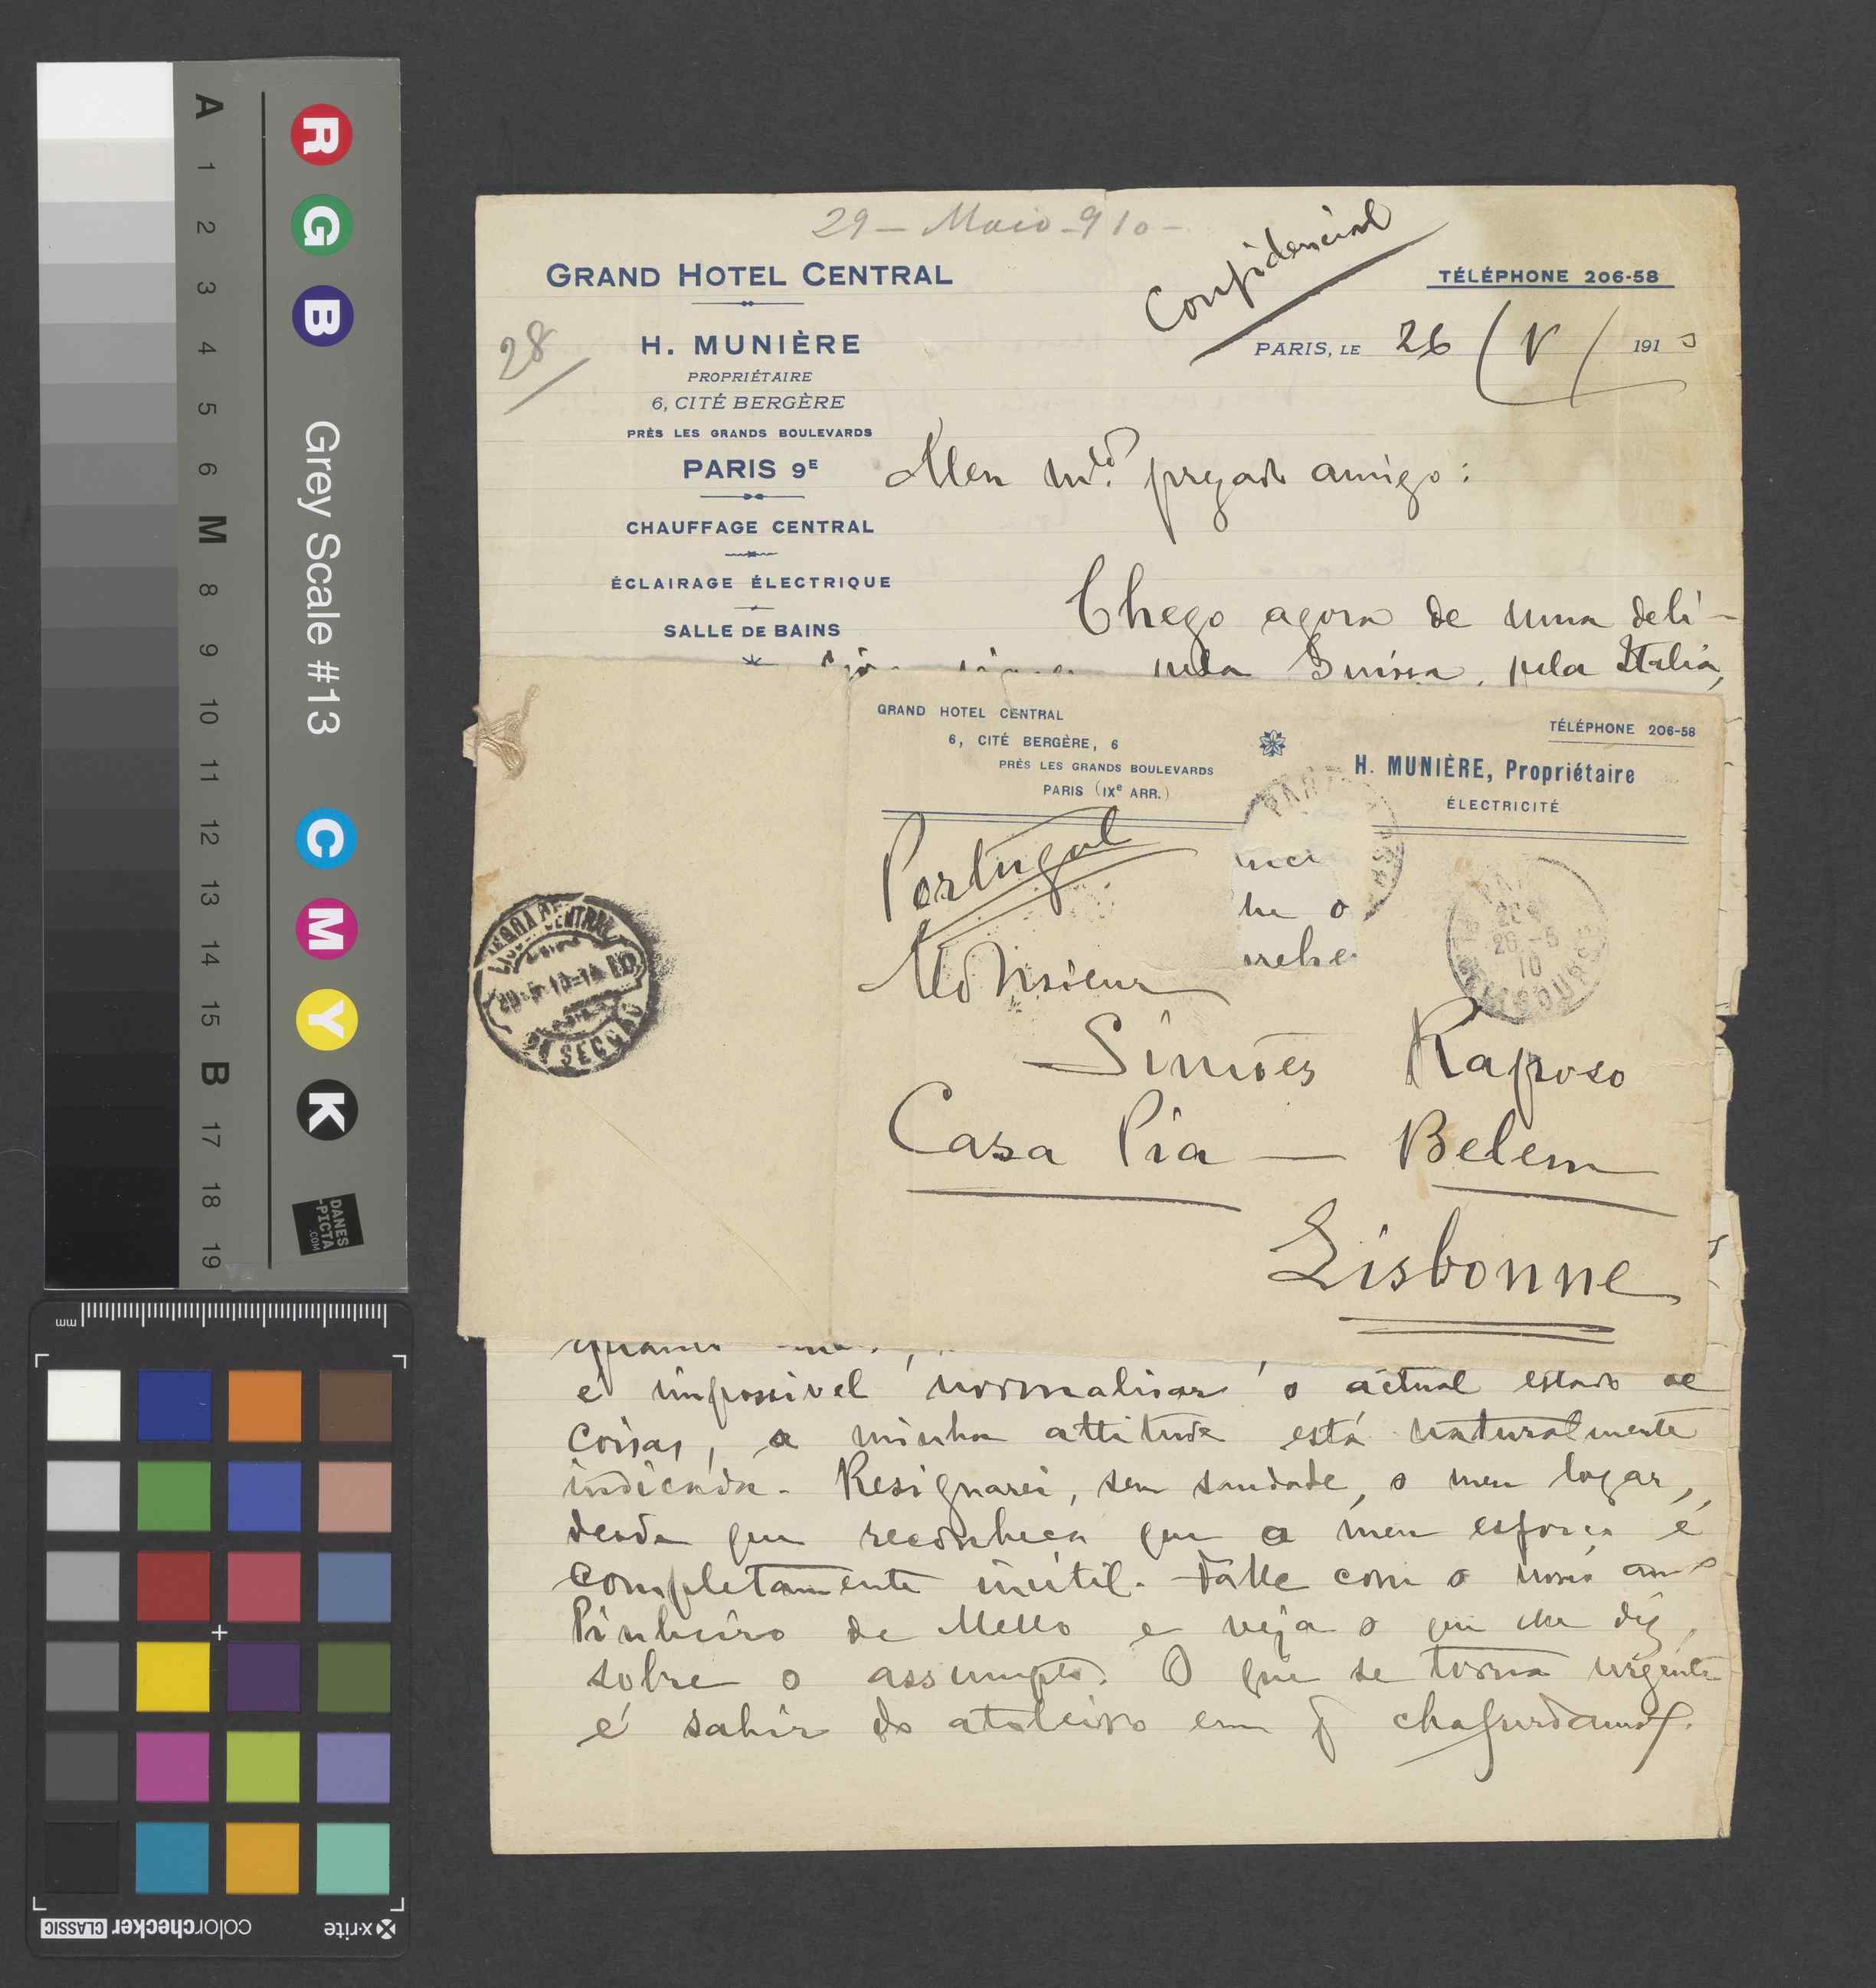 29 - Maio - 910 -
Confidencial
GRAND HOTEL CENTRAL
TÉLÉPHONE 206-58
28
H. MUNIÈRE
PARIS, LE 26 / V / 1910
PROPRIÉTAIRE
6, CITÉ BERGÈRE
PRÈS LES GRANDS BOULEVARDS
PARIS 9E
Meu mto. prezado amigo:
CHAUFFAGE CENTRAL
ÉCLAIRAGE ÉLECTRIQUE
Chego agora de uma deli-
SALLE DE BAINS
pela Suissa, pela Italia,
GRAND HOTEL CENTRAL
6, CITÉ BERGÈRE, 6
PRÈS LES GRANDS BOULEVARDS
PARIS (IXe ARR.)
TÉLÉPHONE 206-58
H. MUNIÈRE, Propriétaire
ÉLECTRICITÉ
Portugal
Monsieur
Simões Raposo
Casa Pia — Belem
Lisbonne
LISBOA CENTRAL
SECÇÃO
PARIS
26 - 5
10
é impossivel normalisar o actual estado de
coisas, a minha attitude está naturalmente
indicada. Resignarei, sem saudade, o meu logar,
desde que reconheça que o meu esforço é
completamente inutil. Falle com o nosso amo
Pinheiro de Mello e veja o que elle diz
sobre o assumpto. O que se torna urgente
é sahir do atoleiro em q chafurdamos.
A 1 2 3 4 5 6 M 8 9 10 11 12 13 14 15 B 17 18 19
R G B Grey Scale #13 C M Y K
DANES
-PICTA
.COM
mm
x-rite colorchecker CLASSIC